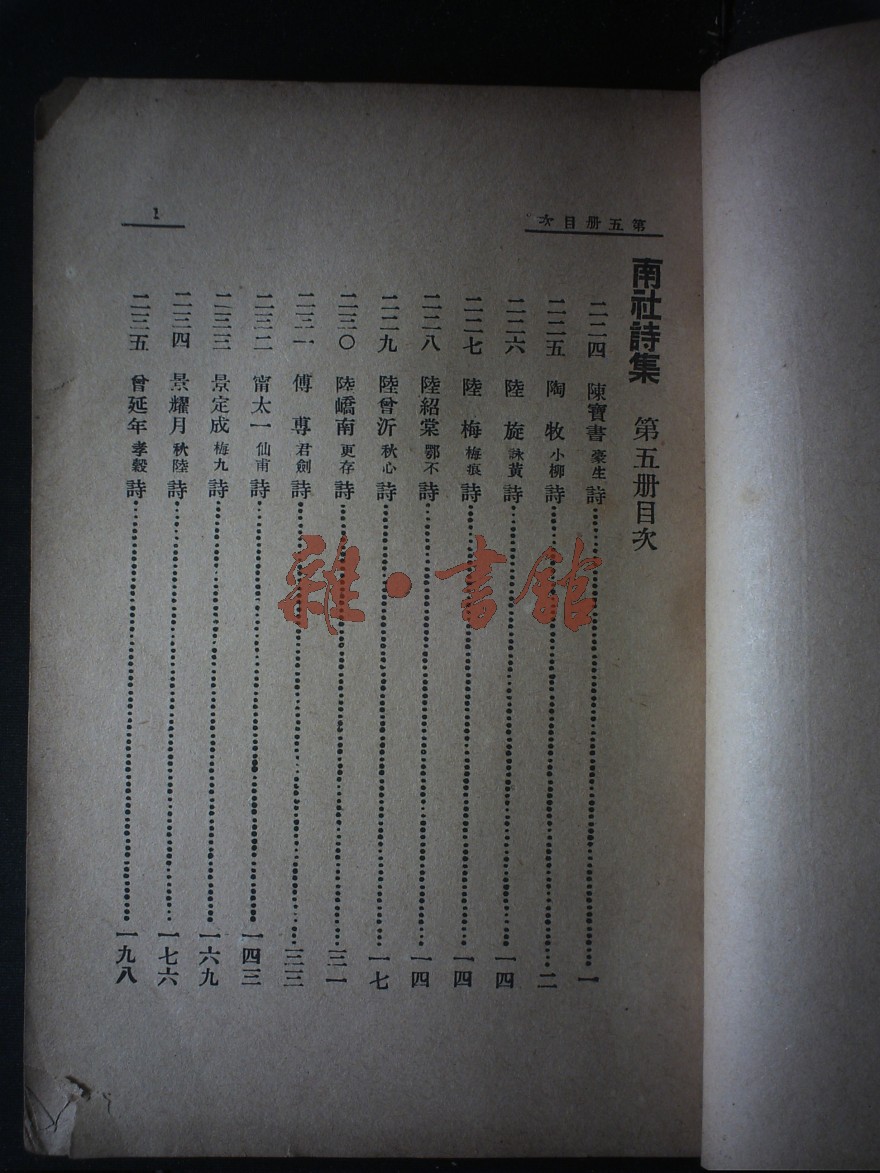 第五册目次
1
南社詩集 第五册目次
二二四 陳寶書 豪生 詩 一
二二五 陶牧 小柳 詩 二
二二六 陸旋 詠黃 詩 一四
二二七 陸梅 梅痕 詩 一四
二二八 陸紹棠 鄂不 詩 一四
二二九 陸曾沂 秋心 詩 一七
二三〇 陸嶠南 更存 詩 三一
二三一 傅尃 君劍 詩 三三
二三二 甯太一 仙甫 詩 一四三
二三三 景定成 梅九 詩 一六九
二三四 景耀月 秋陸 詩 一七六
二三五 曾延年 孝穀 詩 一九八
雜·書館